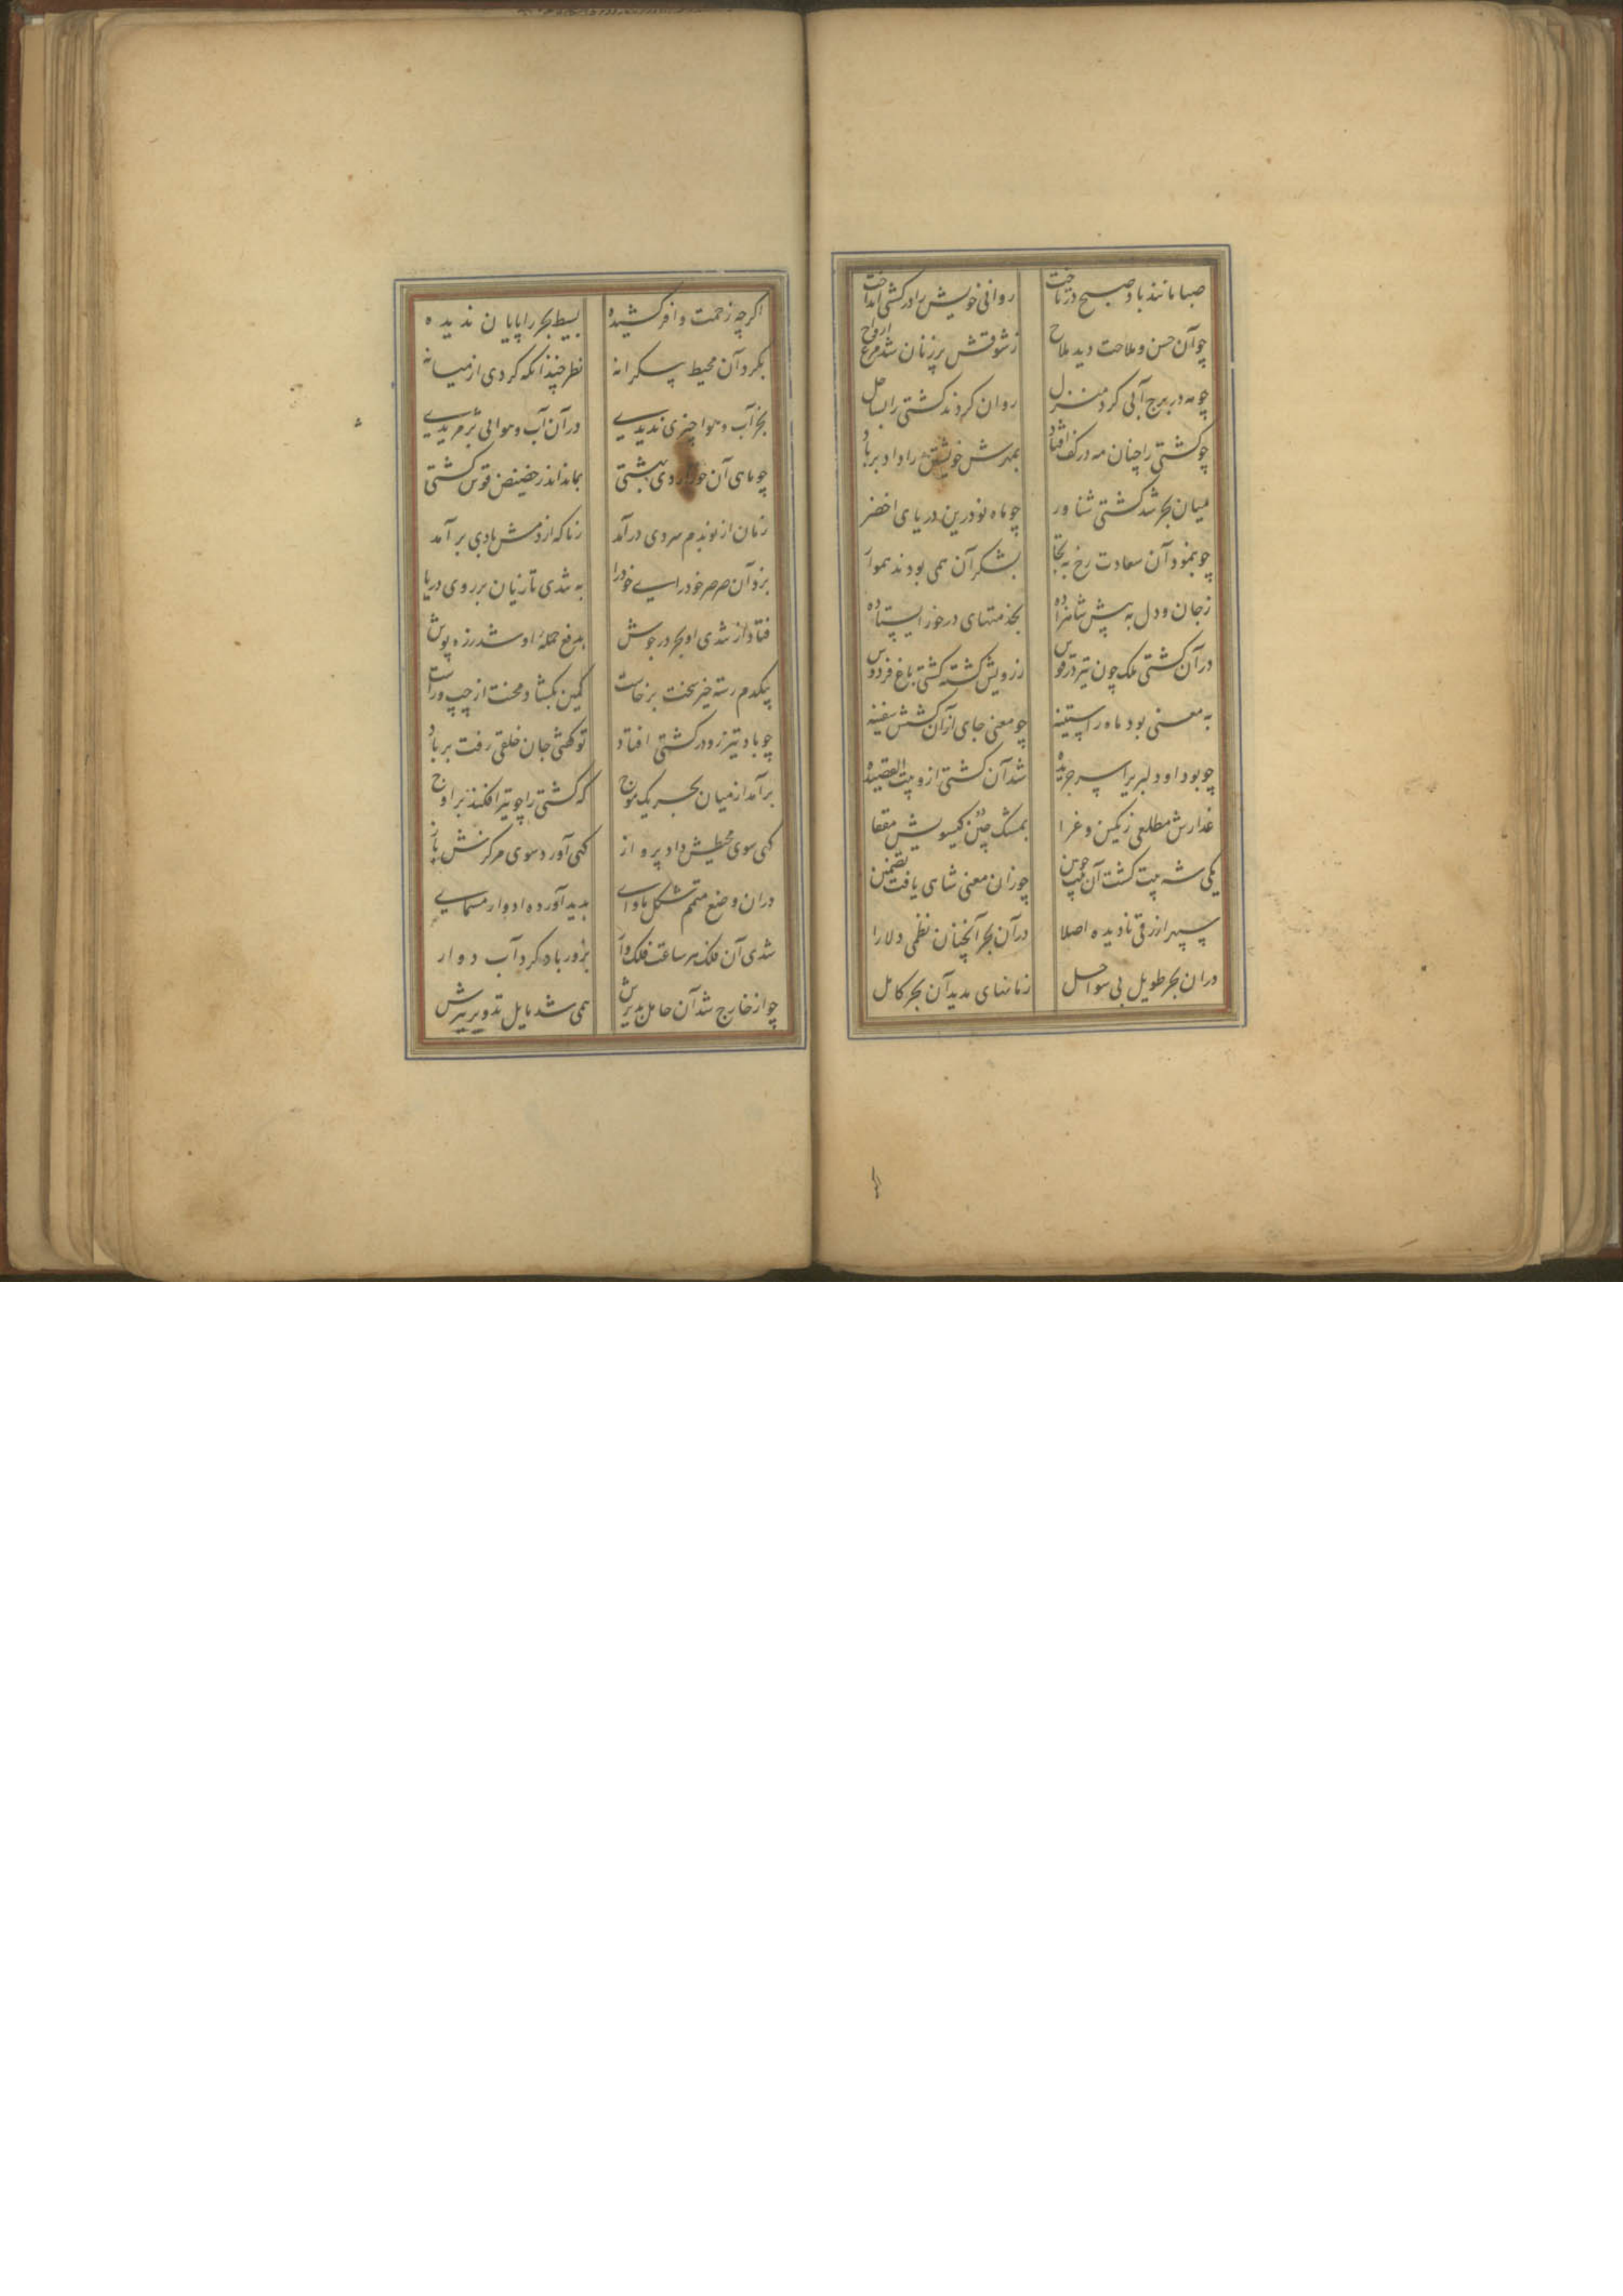 صبا مانند باد صبح در تاخت روانی خویش را در کشی انداخت
چو آن حسن و ملاحت دید ملاح ز شوقش پر زنان شد مرغ ارواح
چو مه در برج آبی کرد منزل روان کردند کشتی را بساحل
چو کشتی را چنان مه در کف افتاد بمهرش خویشتن را داد بر باد
میان بحر شد کشتی شناور چو ماه نو درین دریای اخضر
چو بنمود آن سعادت رخ به تجار بشکر آن همی بودند هموار
ز جان و دل به پیش شاهزاده بخدمتهای در خور ایستاده
در آن کشتی ملک چون تیر در قوس ز رویش کشته کشتی باغ فردوس
به معنی بود ماه راستینه چو معنی جای از آن کشتش سفینه
چو بود او دلبریرا سر جریده شد آن کشتی ازو بیت القصیده
عذارش مطلعی رنکین و غرا بمشک چین دو کیسویش مقفا
یکی شه بیت کشت آن چوبین چو زان معنی شاهی یافت تضمین
سپهر ازرقی نادیده اصلا در آن بحر آنچنان نظمی دلارا
در ان بحر طویل بی سواحل زمانهای مدید آن بحر کامل
اکرچه زحمت وافر کشیده بسیط بحر را پایان ندیده
بکرد آن محیط بیکرانه نظر چندانکه کردی از میانه
بجز آب و هوا چیزی ندیدی در آن آب و هوایی
چو ماهی آن بهشتی بماند اندر حضیض قوس کشتی
زمان از نو بدم سردی درآمد ز ناکه از دمش بادی برآمد
بزد آن صرصر خودرای خود را به تندی تازیان بر روی دریا
فتاد از تندی او بحر در جوش بدفع حمله او شد زره پوش
بیکدم رستخیز سخت برخاست کمین بکشاد محنت از چپ و راست
چو باد تیز رو در کشتی افتاد تو کفتی جان خلقی رفت بر باد
برآمد از میان بحر یک موج که کشتی را چو تیر افکند بر اوج
کهی سوی محیطش داد پرواز کهی آورد سوی مرکزش باز
دران وضع متمم شکل ماوای بدید آورده ادوار
شدی آن فلک هر ساعت فلک وار بزور باد کرد آب دوار
چو از خارج شد آن حامل بدیرش همی شد مایل تدویر تیرش